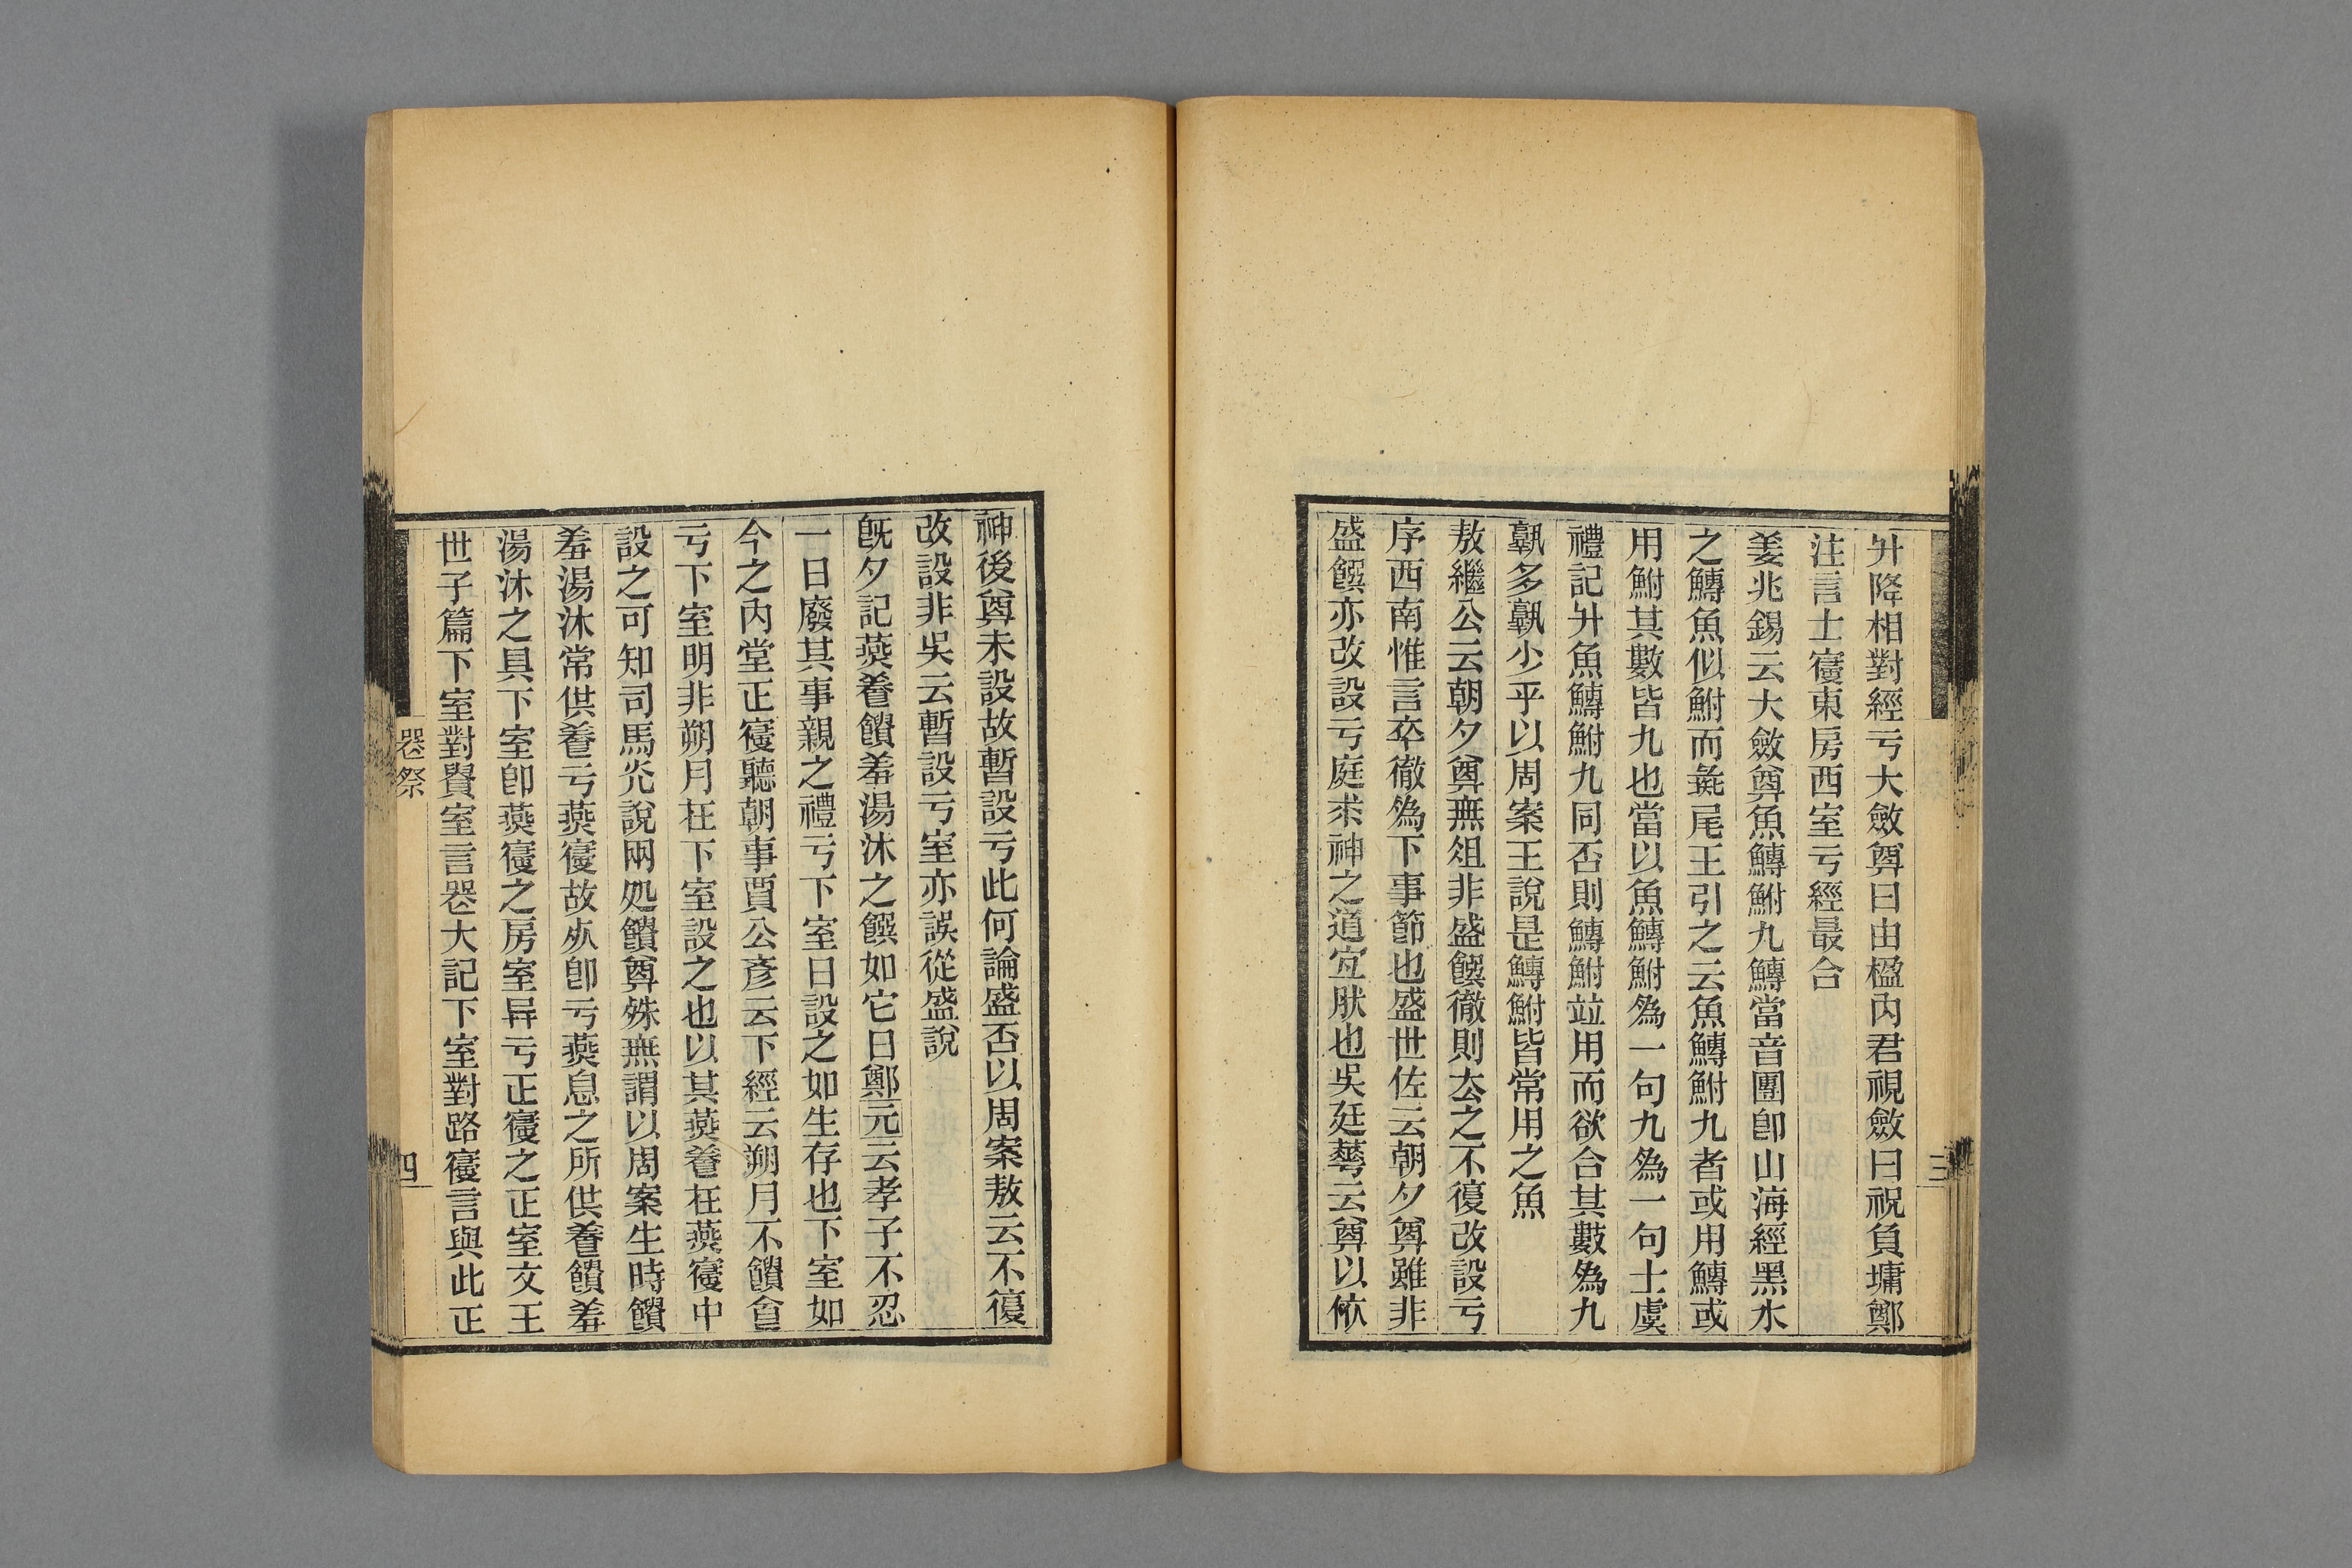 升降相對經亏大斂奠曰由楹內君視斂曰祝負墉鄭
注言士寑東房西室亏經最合
姜兆錫云大斂奠魚鱄鮒九鱄當音團卽山海經黑水
之鱄魚似鮒而彘尾王引之云魚鱄鮒九者或用鱄或
用鮒其數皆九也當以魚鱄鮒爲一句九爲一句士虞
禮記升魚鱄鮒九同否則鱄鮒竝用而欲合其數爲九
孰多孰少乎以周案王說是鱄鮒皆常用之魚
敖繼公云朝夕奠無俎非盛饌徹則去之不復改設亏
序西南惟言卒徹爲下事節也盛世佐云朝夕奠雖非
盛饌亦改設亏庭求神之道宜肰也吳廷華云奠以依
神後奠未設故暫設亏此何論盛否以周案敖云不復
改設非吳云暫設亏室亦誤從盛說
旣夕記燕養饋羞湯沐之饌如它日鄭元云孝子不忍
一日廢其事親之禮亏下室日設之如生存也下室如
今之內堂正寑聽朝事賈公彥云下經云朔月不饋食
亏下室明非朔月在下室設之也以其燕養在燕寑中
設之可知司馬光說兩処饋奠殊無謂以周案生時饋
羞湯沐常供養亏燕寑故死卽亏燕息之所供養饋羞
湯沐之具下室卽燕寑之房室异亏正寑之正室文王
世子篇下室對貴室言喪大記下室對路寑言與此正
喪祭
四
三